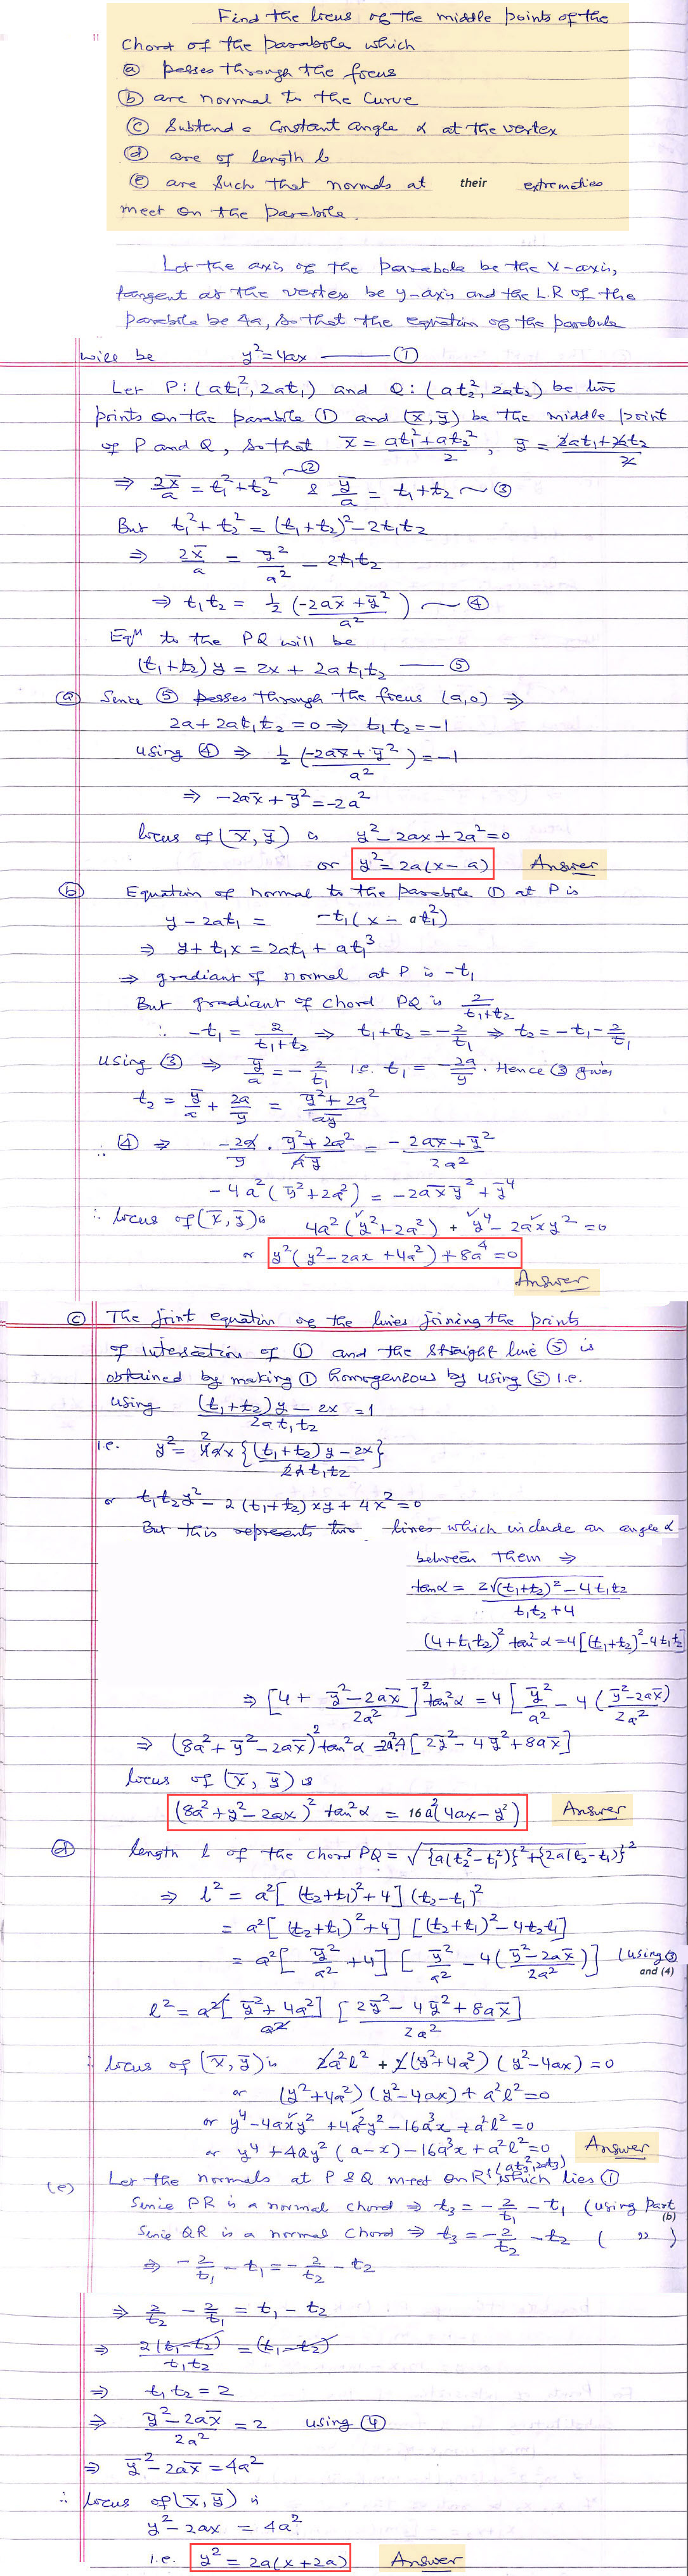 Find the locus of the middle points of the
11 Chord of the parabola which
(a) passes through the focus
(b) are normal to the curve
(c) Subtend a constant angle α at the vertex
(d) are of length l
(e) are such that normals at their extremeties
meet on the parabola.
Let the axis of the parabola be the X-axis,
tangent at the vertex be y-axis and the L.R of the
parabola be 4a, so that the equation of the parabola
will be y² = 4ax —— (1)
Let P: (at₁², 2at₁) and Q: (at₂², 2at₂) be two
points on the parabola (1) and (x̄, ȳ) be the middle point
of P and Q, so that x̄ = (at₁² + at₂²)/2, ȳ = (2at₁ + 2t₂)/2
⇒ 2x̄/a = t₁² + t₂² ~(2) & ȳ/a = t₁ + t₂ ~ (3)
But t₁² + t₂² = (t₁ + t₂)² − 2t₁t₂
⇒ 2x̄/a = ȳ²/a² − 2t₁t₂
⇒ t₁t₂ = ½ (−2ax̄ + ȳ²)/a² ~ (4)
Eqⁿ to the PQ will be
(t₁ + t₂) y = 2x + 2a t₁t₂ —— (5)
(a) Since (5) passes through the focus (a, 0) ⇒
2a + 2at₁t₂ = 0 ⇒ t₁t₂ = −1
using (4) ⇒ ½ (−2ax̄ + ȳ²)/a² = −1
⇒ −2ax̄ + ȳ² = −2a²
locus of (x̄, ȳ) is y² − 2ax + 2a² = 0
or y² = 2a(x − a) Answer
(b) Equation of normal to the parabola (1) at P is
y − 2at₁ = −t₁(x − at₁²)
⇒ y + t₁x = 2at₁ + at₁³
⇒ gradiant of normal at P is −t₁
But gradiant of chord PQ is 2/(t₁+t₂)
∴ −t₁ = 2/(t₁+t₂) ⇒ t₁+t₂ = −2/t₁ ⇒ t₂ = −t₁ − 2/t₁
using (3) ⇒ ȳ/a = −2/t₁ i.e. t₁ = −2a/ȳ. Hence (3) gives
t₂ = ȳ/a + 2a/ȳ = (ȳ² + 2a²)/aȳ
∴ (4) ⇒ −2a/ȳ · (ȳ² + 2a²)/aȳ = (−2ax̄ + ȳ²)/2a²
−4a²(ȳ² + 2a²) = −2ax̄ȳ² + ȳ⁴
∴ locus of (x̄, ȳ) is 4a²(y² + 2a²) + y⁴ − 2axy² = 0
or y²(y² − 2ax + 4a²) + 8a⁴ = 0
Answer
(c) The joint equation of the lines joining the points
of intersection of (1) and the straight line (5) is
obtained by making (1) homogeneous by using (5) i.e.
using ((t₁+t₂)y − 2x)/2at₁t₂ = 1
i.e. y² = 4ax {(t₁+t₂)y − 2x}/2at₁t₂ 2
or t₁t₂y² − 2(t₁+t₂)xy + 4x² = 0
But this represents two lines which include an angle α
between them ⇒
tanα = 2√((t₁+t₂)² − 4t₁t₂)/(t₁t₂ + 4)
(4 + t₁t₂)² tan²α = 4[(t₁+t₂)² − 4t₁t₂]
⇒ [4 + (ȳ² − 2ax̄)/2a²]² tan²α = 4[ȳ²/a² − 4(ȳ² − 2ax̄)/2a²
⇒ (8a² + ȳ² − 2ax̄)² tan²α = 2a².4[2ȳ² − 4ȳ² + 8ax̄]
locus of (x̄, ȳ) is
(8a² + y² − 2ax)² tan²α = 16a²(4ax − y²) Answer
(d) length l of the chord PQ = √{a(t₂² − t₁²)}² + {2a(t₂ − t₁)}²
⇒ l² = a²[(t₂+t₁)² + 4](t₂ − t₁)²
= a²[(t₂+t₁)² + 4][(t₂+t₁)² − 4t₂t₁]
= a²[ȳ²/a² + 4][ȳ²/a² − 4(ȳ² − 2ax̄)/2a²)] (using (3) and (4)
l² = a²[ȳ² + 4a²]/a² [2ȳ² − 4ȳ² + 8ax̄]/2a²
∴ locus of (x̄, ȳ) is 2a²l² + 2(y² + 4a²)(y² − 4ax) = 0
or (y² + 4a²)(y² − 4ax) + a²l² = 0
or y⁴ − 4axy² + 4a²y² − 16a³x + a²l² = 0
or y⁴ + 4ay²(a − x) − 16a³x + a²l² = 0 Answer
(e) Let the normals at P & Q meet on R: (at₃², 2at₃) which lies (1)
Since PR is a normal chord ⇒ t₃ = −2/t₁ − t₁ (using Part (b)
Since QR is a normal chord ⇒ t₃ = −2/t₂ − t₂ ( ,, )
⇒ −2/t₁ − t₁ = −2/t₂ − t₂
⇒ 2/t₂ − 2/t₁ = t₁ − t₂
⇒ 2(t₁ − t₂)/t₁t₂ = (t₁ − t₂)
⇒ t₁t₂ = 2
⇒ (ȳ² − 2ax̄)/2a² = 2 using (4)
⇒ ȳ² − 2ax̄ = 4a²
∴ locus of (x̄, ȳ) is
y² − 2ax = 4a²
i.e. y² = 2a(x + 2a) Answer